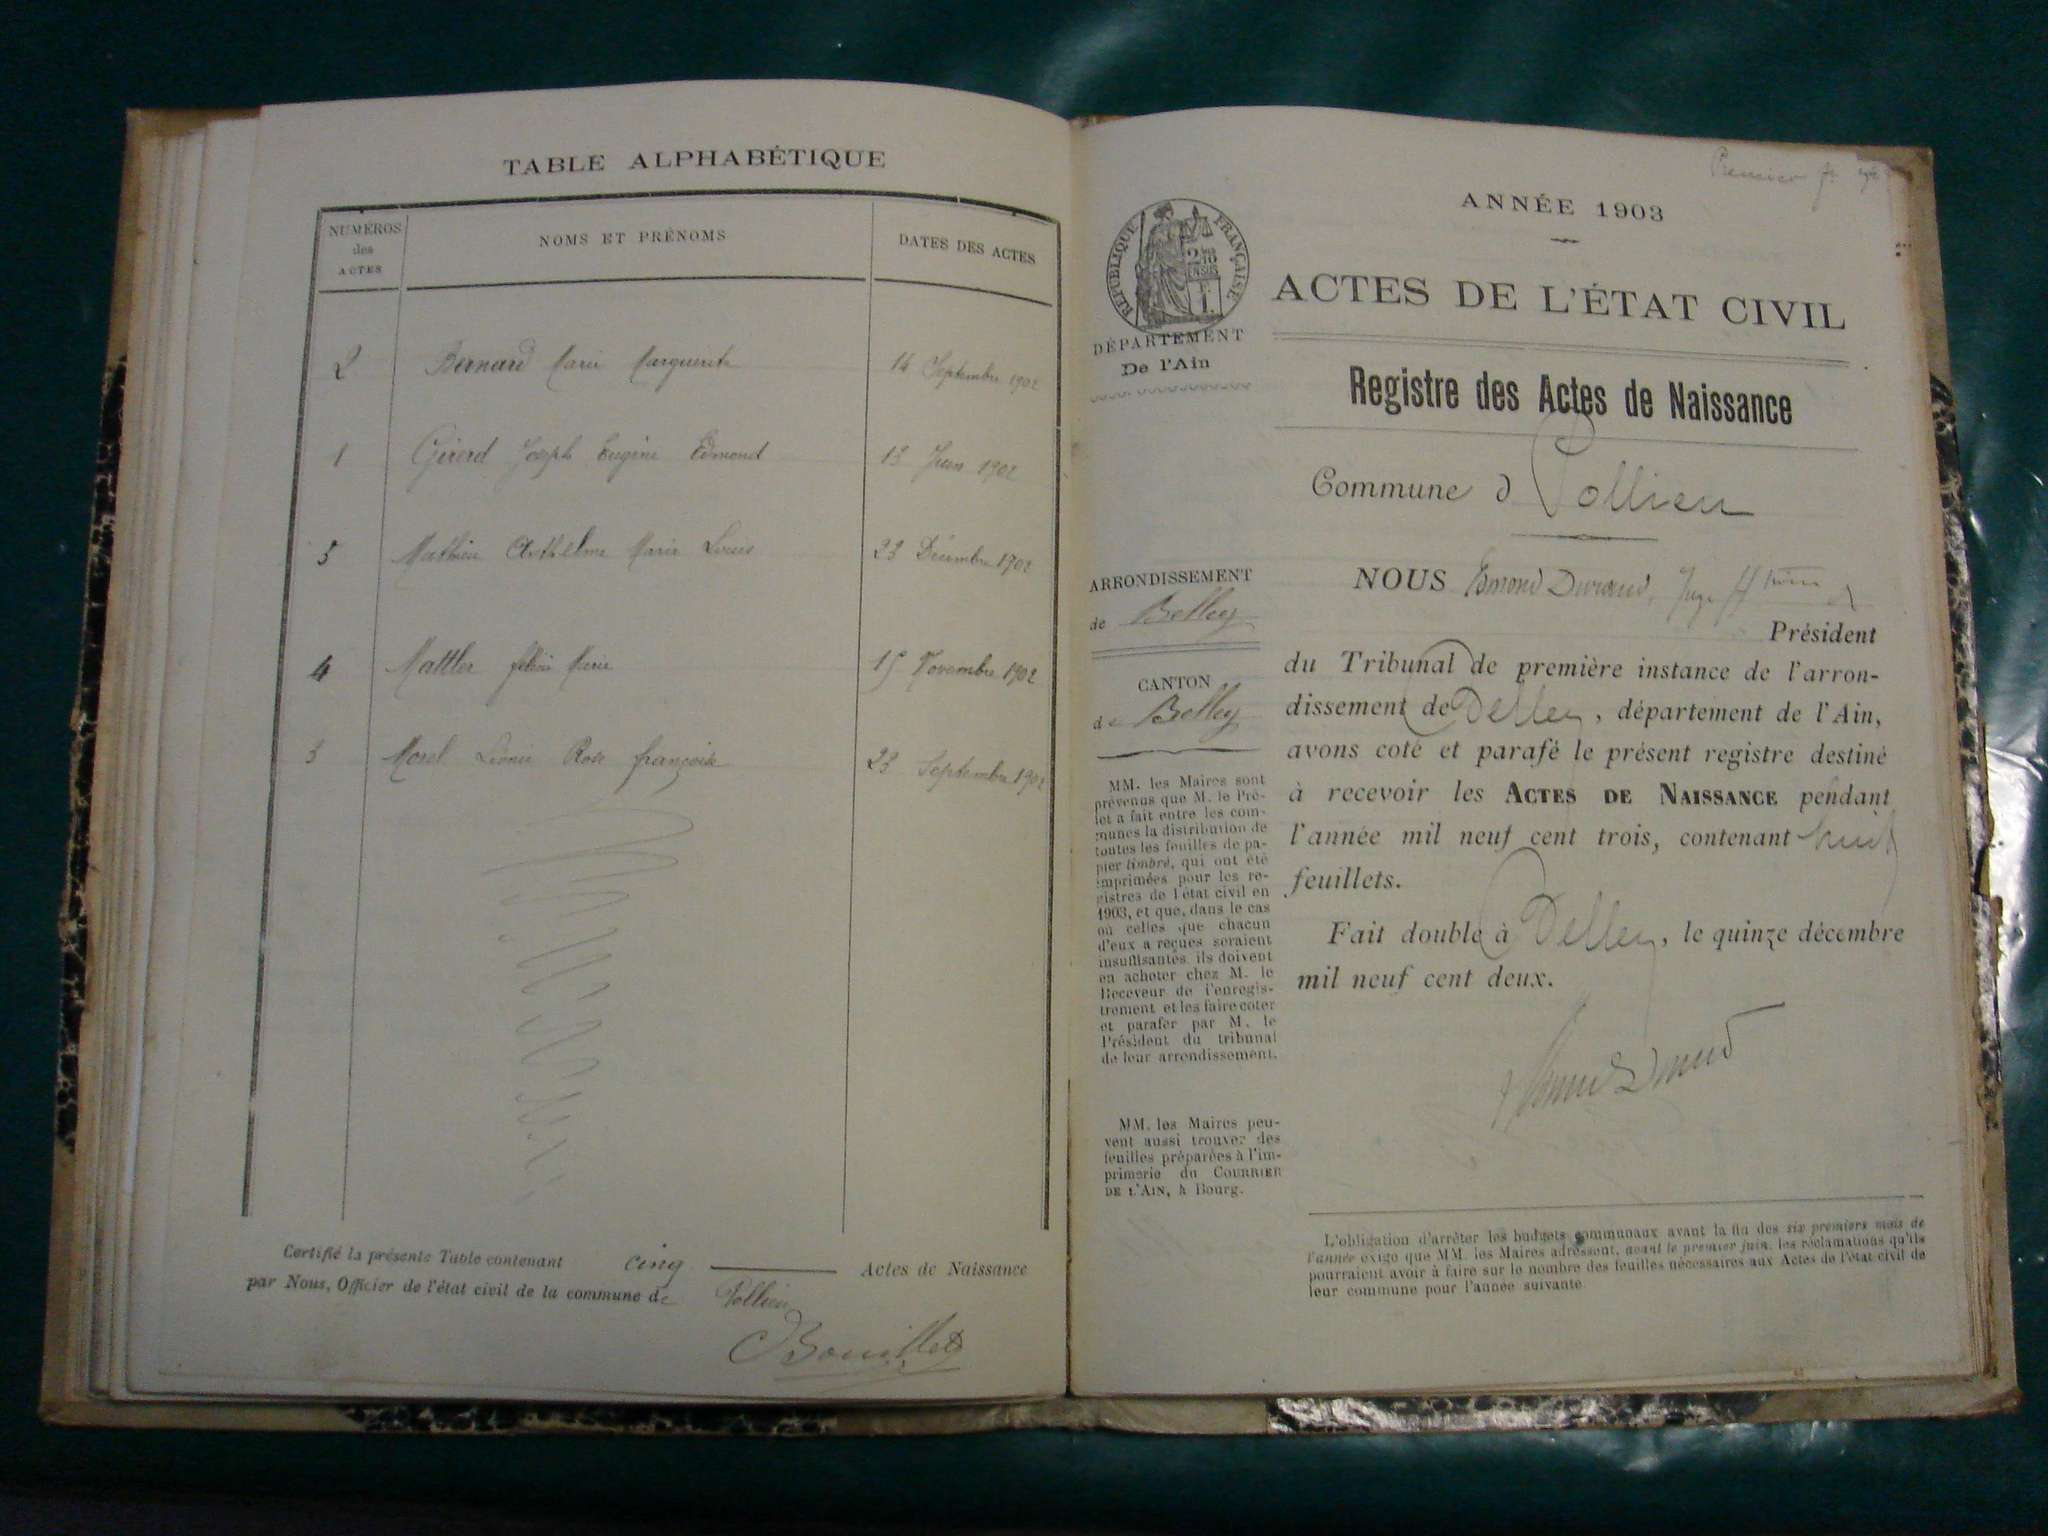 TABLE ALPHABÉTIQUE
NUMÉROS des ACTES
NOMS ET PRÉNOMS
DATES DES ACTES
2 Bernard Marie Marguerite 14 Septembre 1902
1 Girerd Joseph Eugène Edmond 13 Juin 1902
5 Mathieu Anthelme Marie Louis 23 Décembre 1902
4 Mattler Marie 15 Novembre 1902
3 Morel Léonie Rose françoise 23 Septembre 1902
Certifié la présente Table contenant cinq Actes de Naissance
par Nous, Officier de l'état civil de la commune de Pollieu
Bouillet
Premier
ANNÉE 1903
RÉPUBLIQUE FRANÇAISE
ACTES DE L'ÉTAT CIVIL
DÉPARTEMENT
De l'Ain
Registre des Actes de Naissance
Commune d Pollieu
ARRONDISSEMENT
de Belley
CANTON
de Belley
MM. les Maires sont
prévenus que M. le Pré-
fet a fait entre les com-
munes la distribution de
toutes les feuilles de pa-
pier timbré, qui ont été
imprimées pour les re-
gistres de l'état civil en
1903, et que, dans le cas
où celles que chacun
d'eux a reçues seraient
insuffisantes, ils doivent
en acheter chez M. le
Receveur de l'enregis-
trement et les faire coter
et parafer par M. le
Président du tribunal
de leur arrondissement.
MM. les Maires peu-
vent aussi trouver des
feuilles préparées à l'im-
primerie du COURRIER
DE L'AIN, à Bourg.
NOUS Edmond Durand, Juge
Président
du Tribunal de première instance de l'arron-
dissement de Belley, département de l'Ain,
avons coté et parafé le présent registre destiné
à recevoir les ACTES DE NAISSANCE pendant
l'année mil neuf cent trois, contenant huit
feuillets.
Fait double à Belley, le quinze décembre
mil neuf cent deux.
Edmond Durand
L'obligation d'arrêter les budgets communaux avant la fin des six premiers mois de
l'année exige que MM. les Maires adressent, avant le premier juin, les réclamations qu'ils
pourraient avoir à faire sur le nombre des feuilles nécessaires aux Actes de l'état civil de
leur commune pour l'année suivante